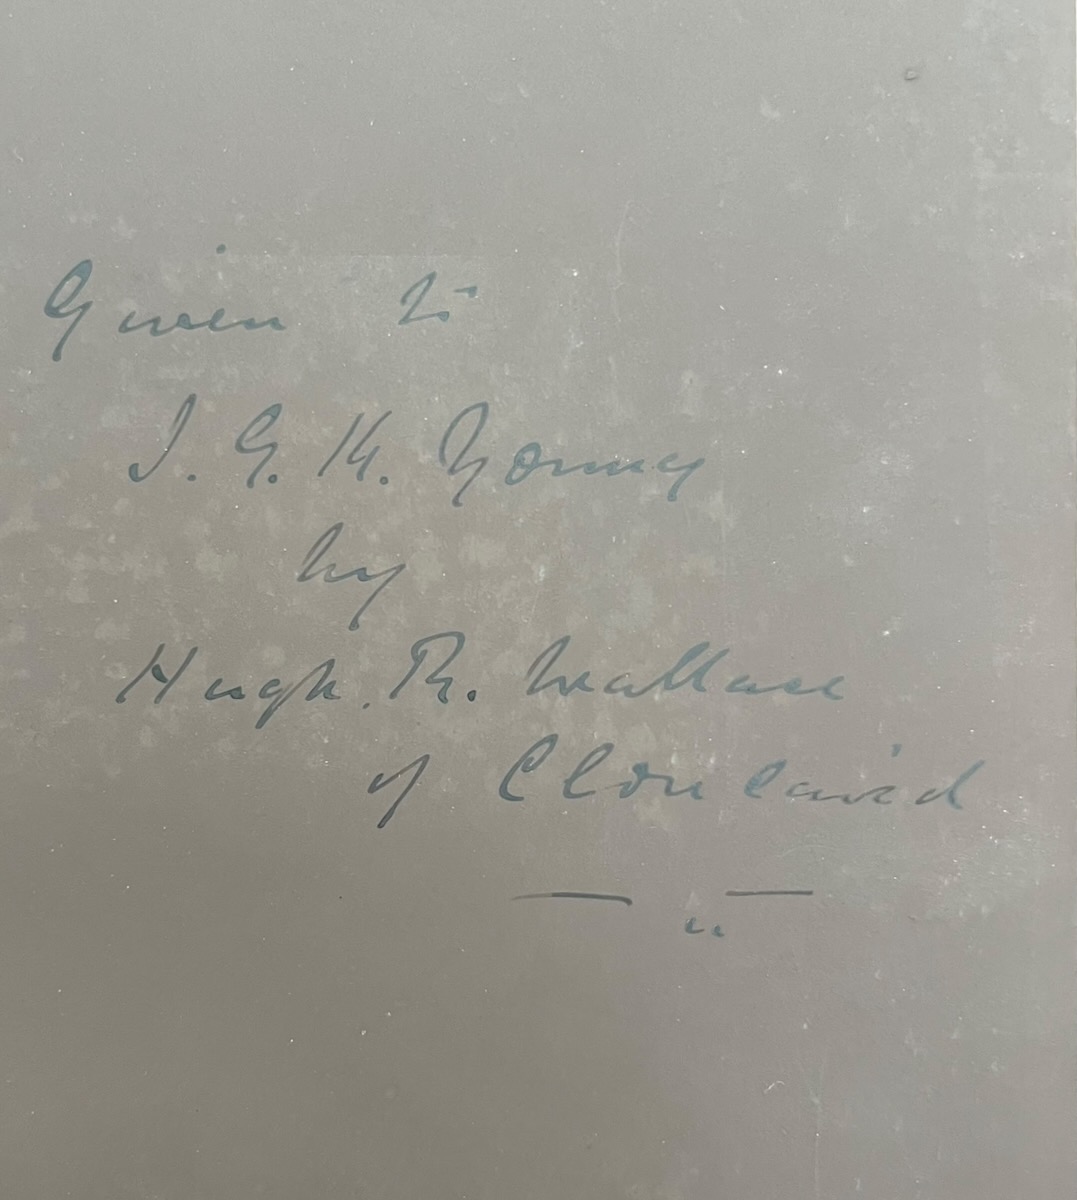 Given to
J. G. K. Young
by
Hugh. R. Wallace
of Cloncaird